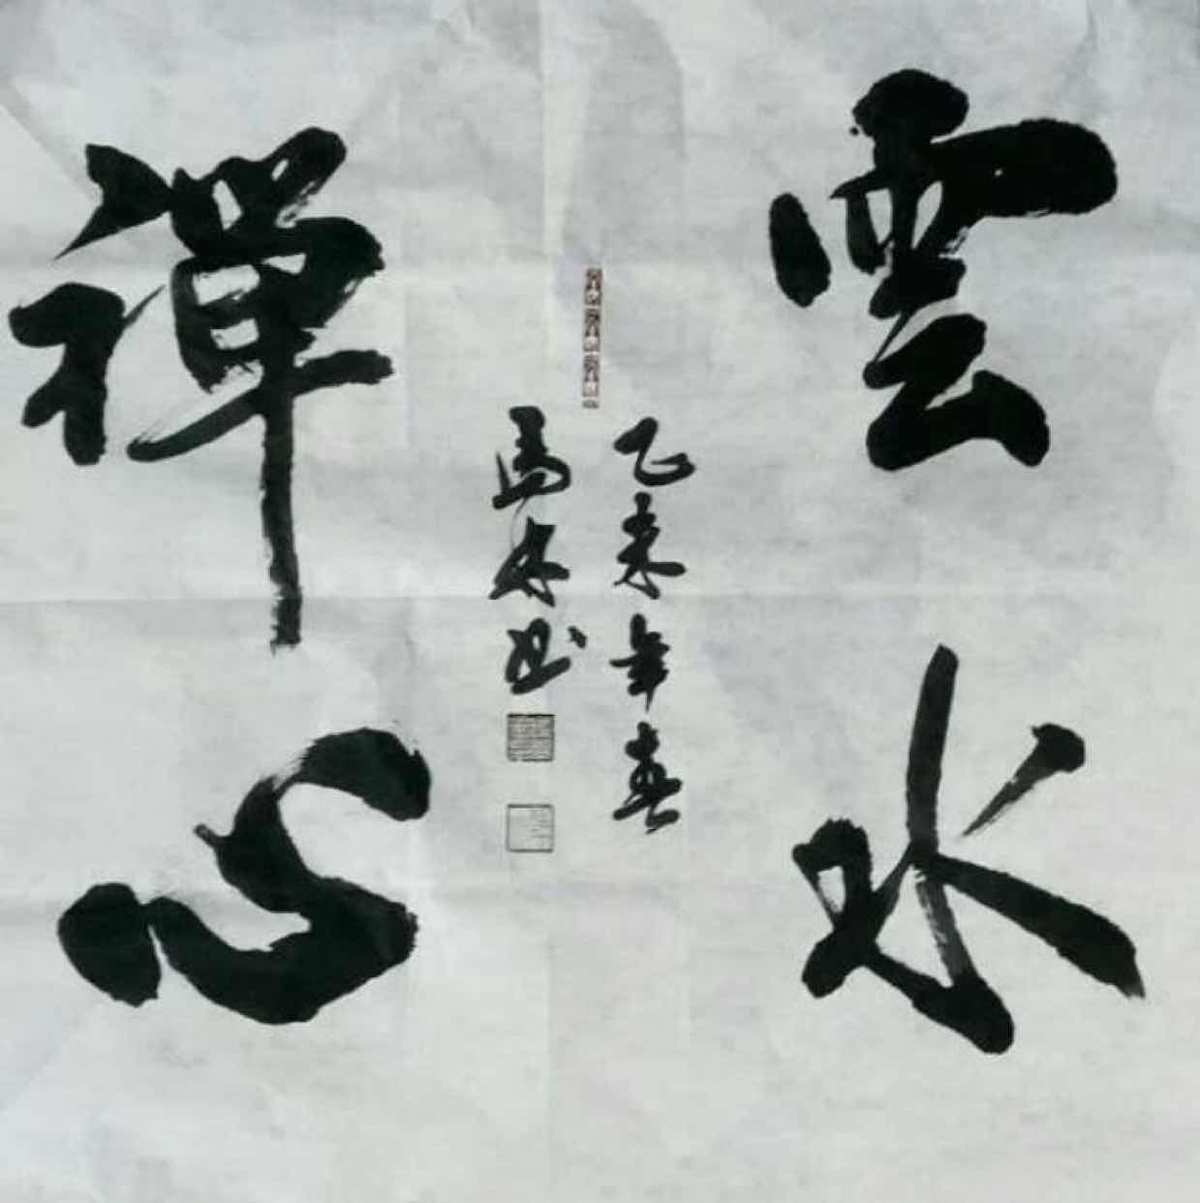 雲水
禪心
乙未年春
馬林书